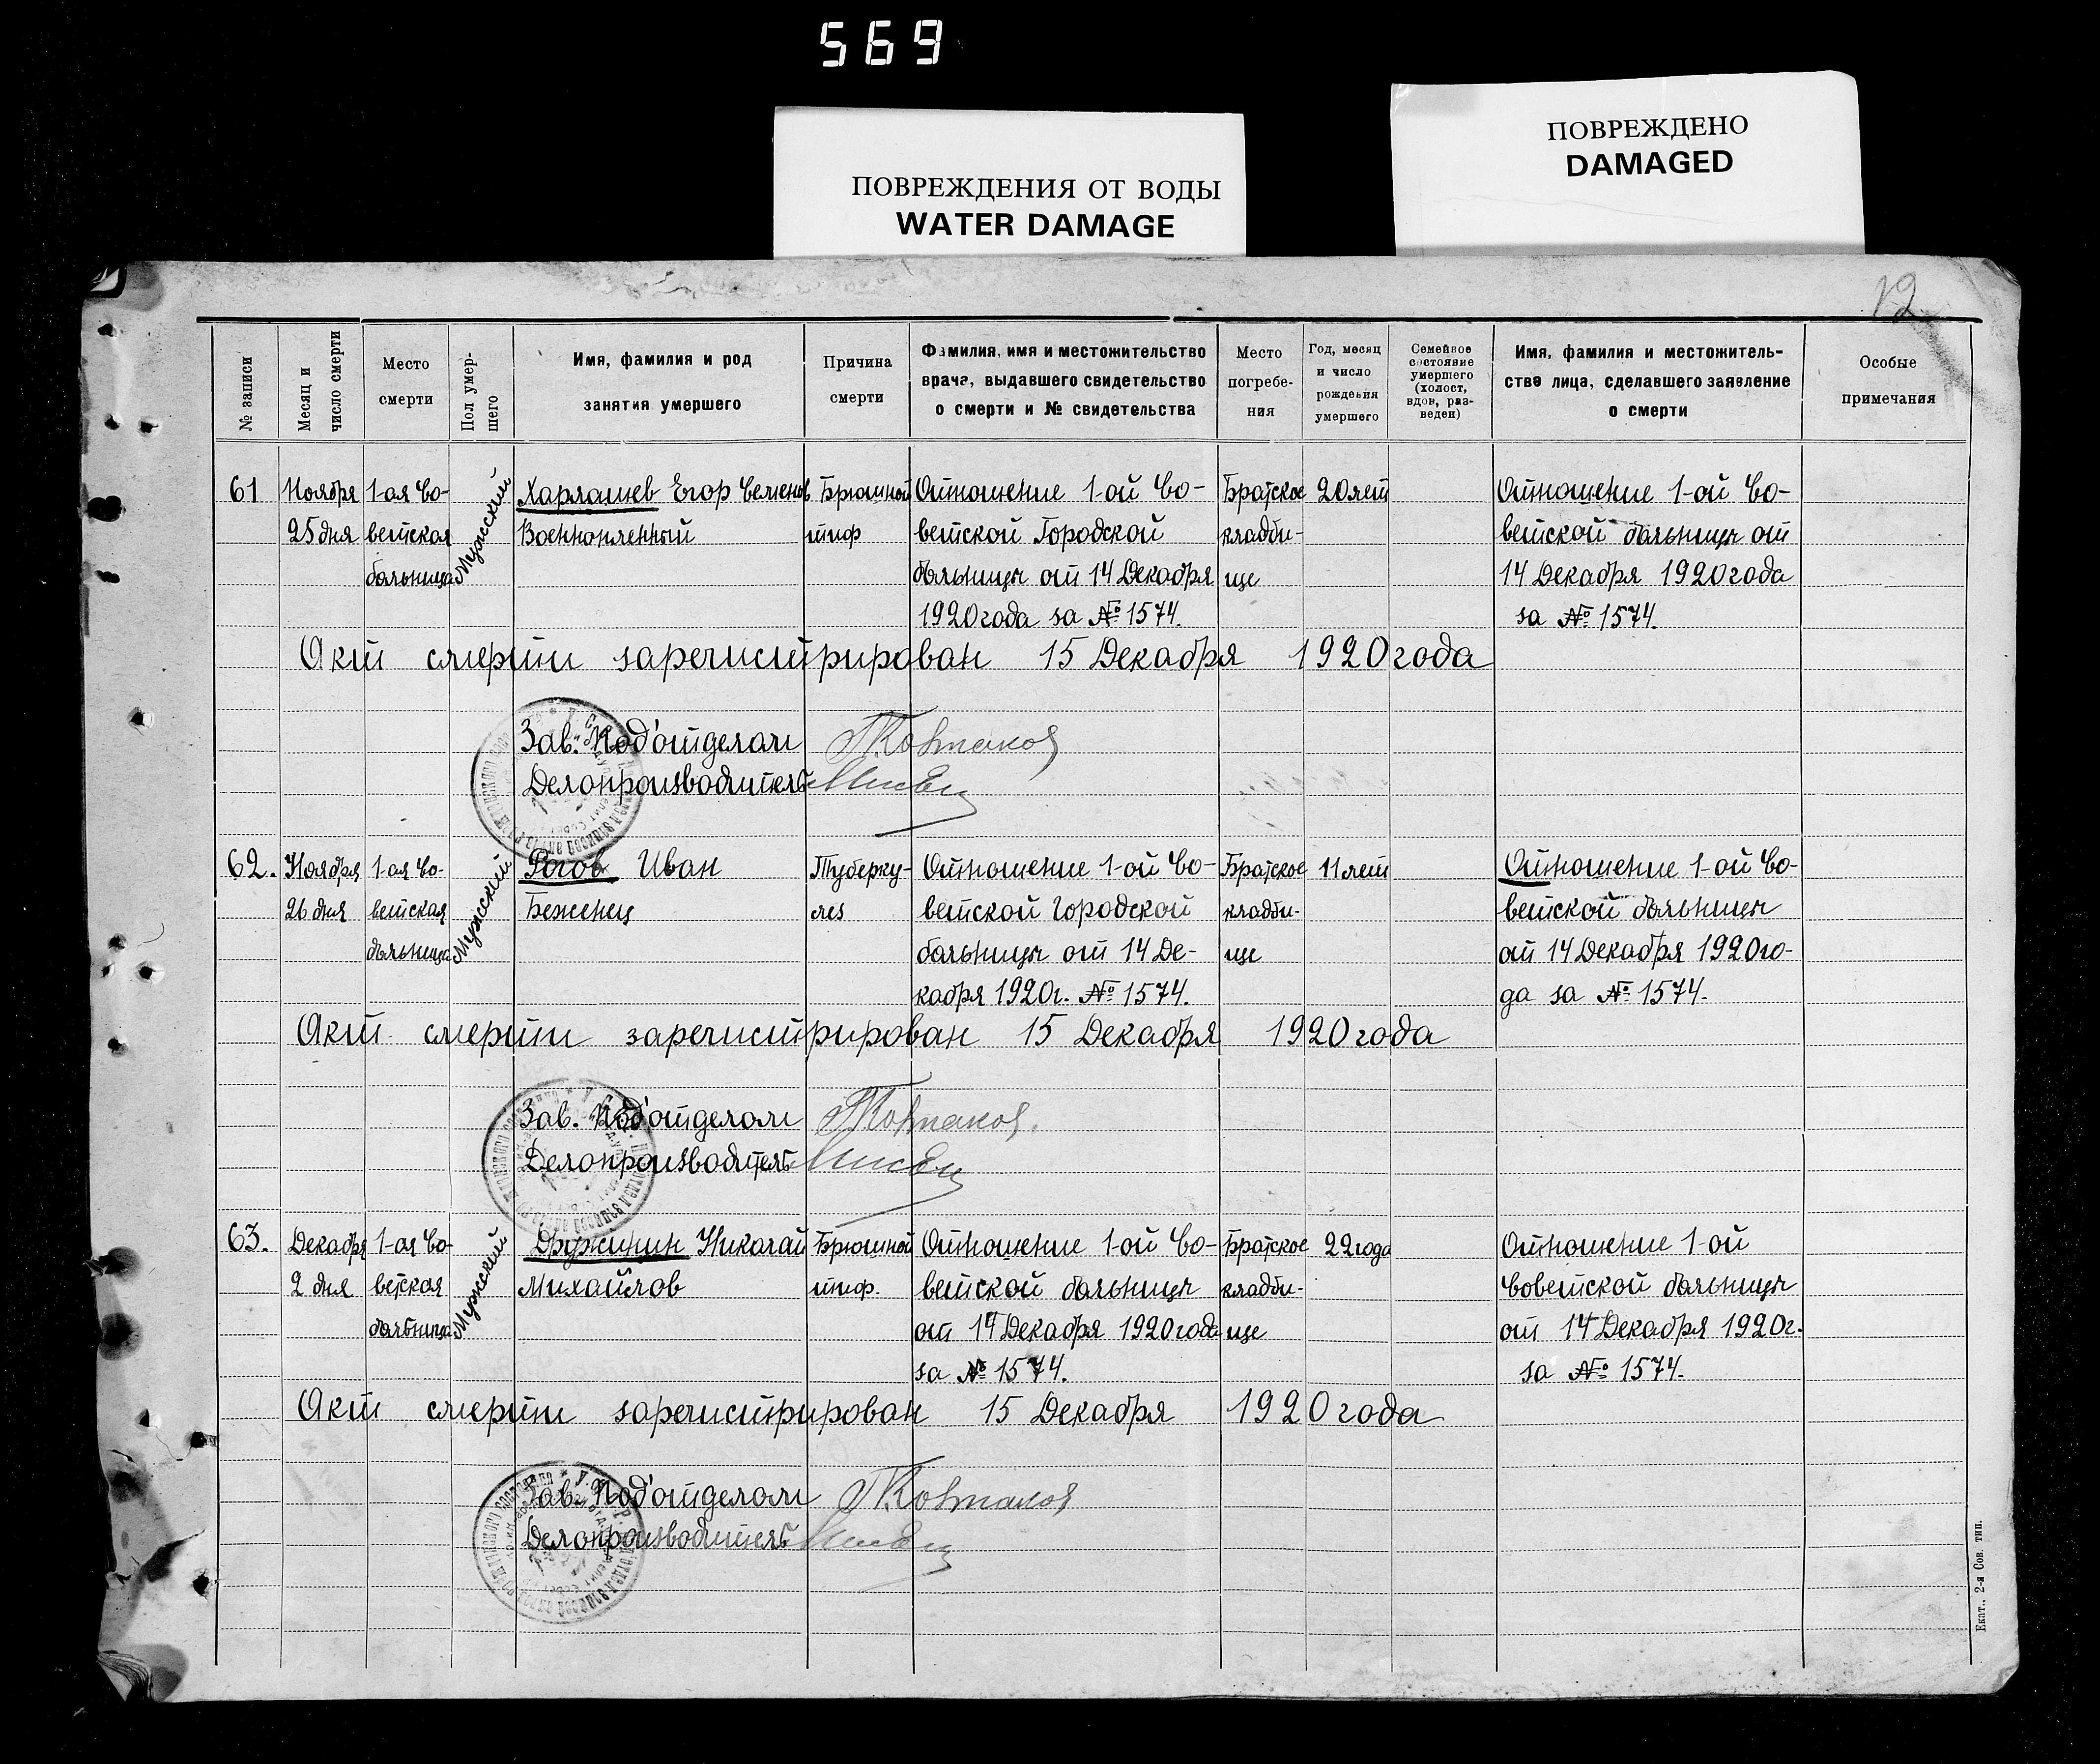 569
ПОВРЕЖДЕНИЯ ОТ ВОДЫ
WATER DAMAGE
ПОВРЕЖДЕНО
DAMAGED
12
№ записи
Месяц и число смерти
Место смерти
Пол умер-
шего
Имя, фамилия и род
занятия умершего
Причина
смерти
Фамилия, имя и местожительство
врача, выдавшего свидетельство
о смерти и № свидетельства
Место
погребе-
ния
Год, месяц
и число
рождения
умершего
Семейное
состояние
умершего
(холост,
вдов, раз-
веден)
Имя, фамилия и местожитель-
ство лица, сделавшего заявление
о смерти
Особые
примечания
61
Ноября
25 дня
1-ая Со-
ветская
больница
Мужский
Харлашев Егор Семенов
Военнопленный
Брюшной
тиф
Отношение 1-ой Со-
ветской Городской
больницы от 14 Декабря
1920 года за № 1574.
Братское
кладби-
ще
20 лет
Отношение 1-ой Со-
ветской больницы от
14 Декабря 1920 года
за № 1574.
Акт смерти зарегистрирован 15 Декабря 1920 года
Зав. Под'отделом
Делопроизводитель
62.
Ноября
26 дня
1-ая Со-
ветская
больница
Мужский
Рогов Иван
Беженец
Туберку-
лез
Отношение 1-ой Со-
ветской городской
больницы от 14 Де-
кабря 1920г. № 1574.
Братское
кладби-
ще
11 лет
Отношение 1-ой Со-
ветской больницы
от 14 Декабря 1920 го-
да за № 1574.
Акт смерти зарегистрирован 15 Декабря 1920 года
Зав. Под'отделом
Делопроизводитель
63.
Декабря
2 дня
1-ая Со-
ветская
больница
Мужский
Дружинин Николай
Михайлов
Брюшной
тиф.
Отношение 1-ой Со-
ветской больницы
от 14 Декабря 1920 года
за № 1574.
Братское
кладби-
ще
22 года
Отношение 1-ой
Советской больницы
от 14 Декабря 1920г.
за № 1574.
Акт смерти зарегистрирован 15 Декабря 1920 года
Зав. Под'отделом
Делопроизводитель
Екат., 2-я Сов. тип.